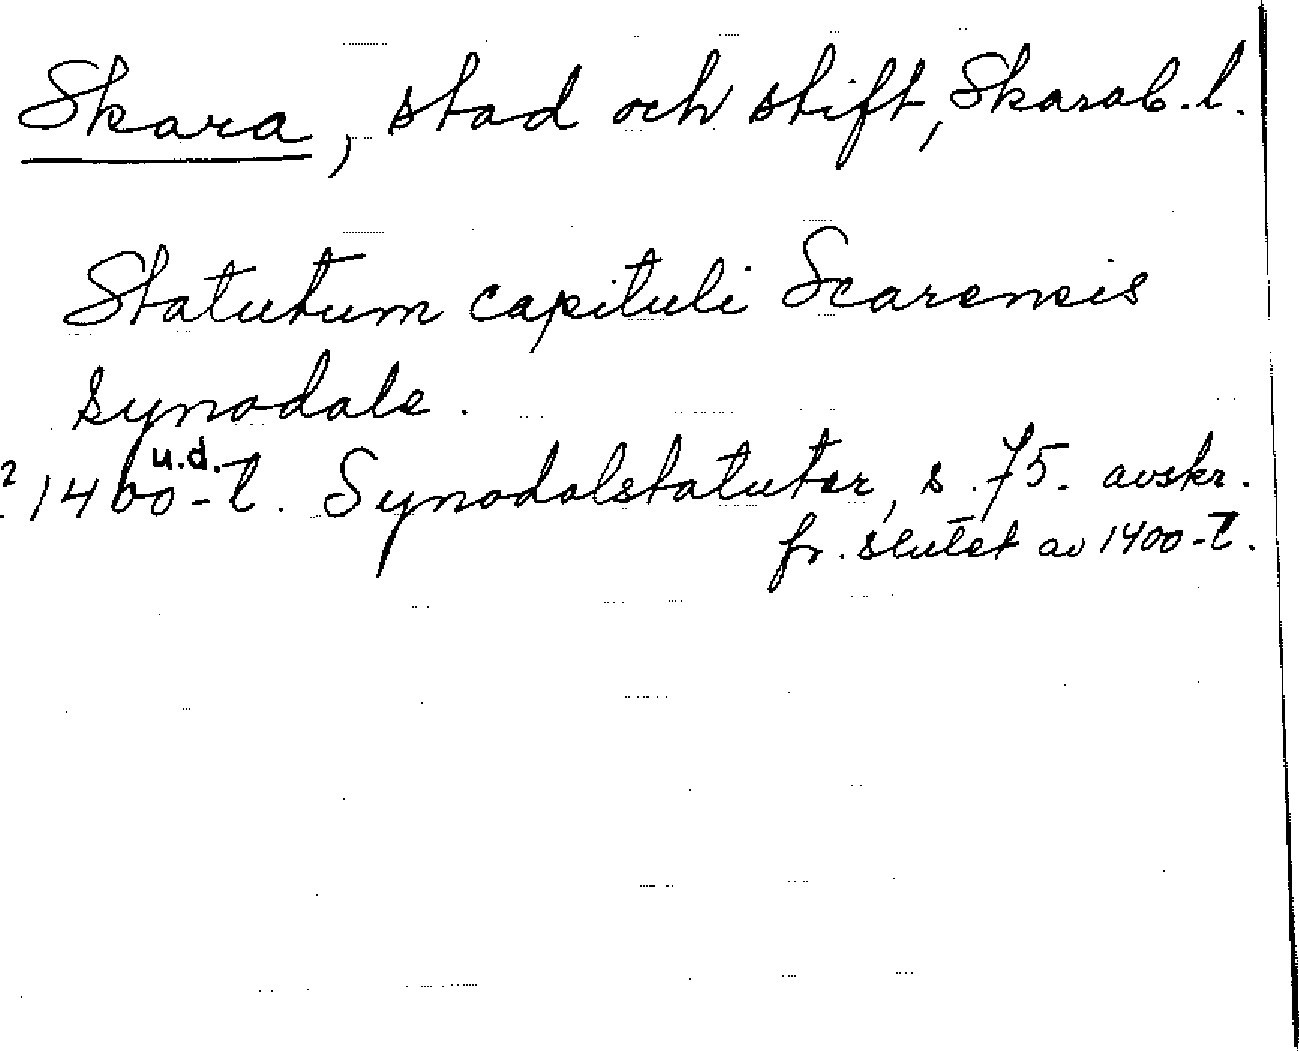 Skara, stad och stift, Skarab. l.
Statutum capituli Scarensis
synodale.
u.d.
? 1400-t. Synodalstatuter, s. 75. avskr.
fr. slutet av 1400-t.